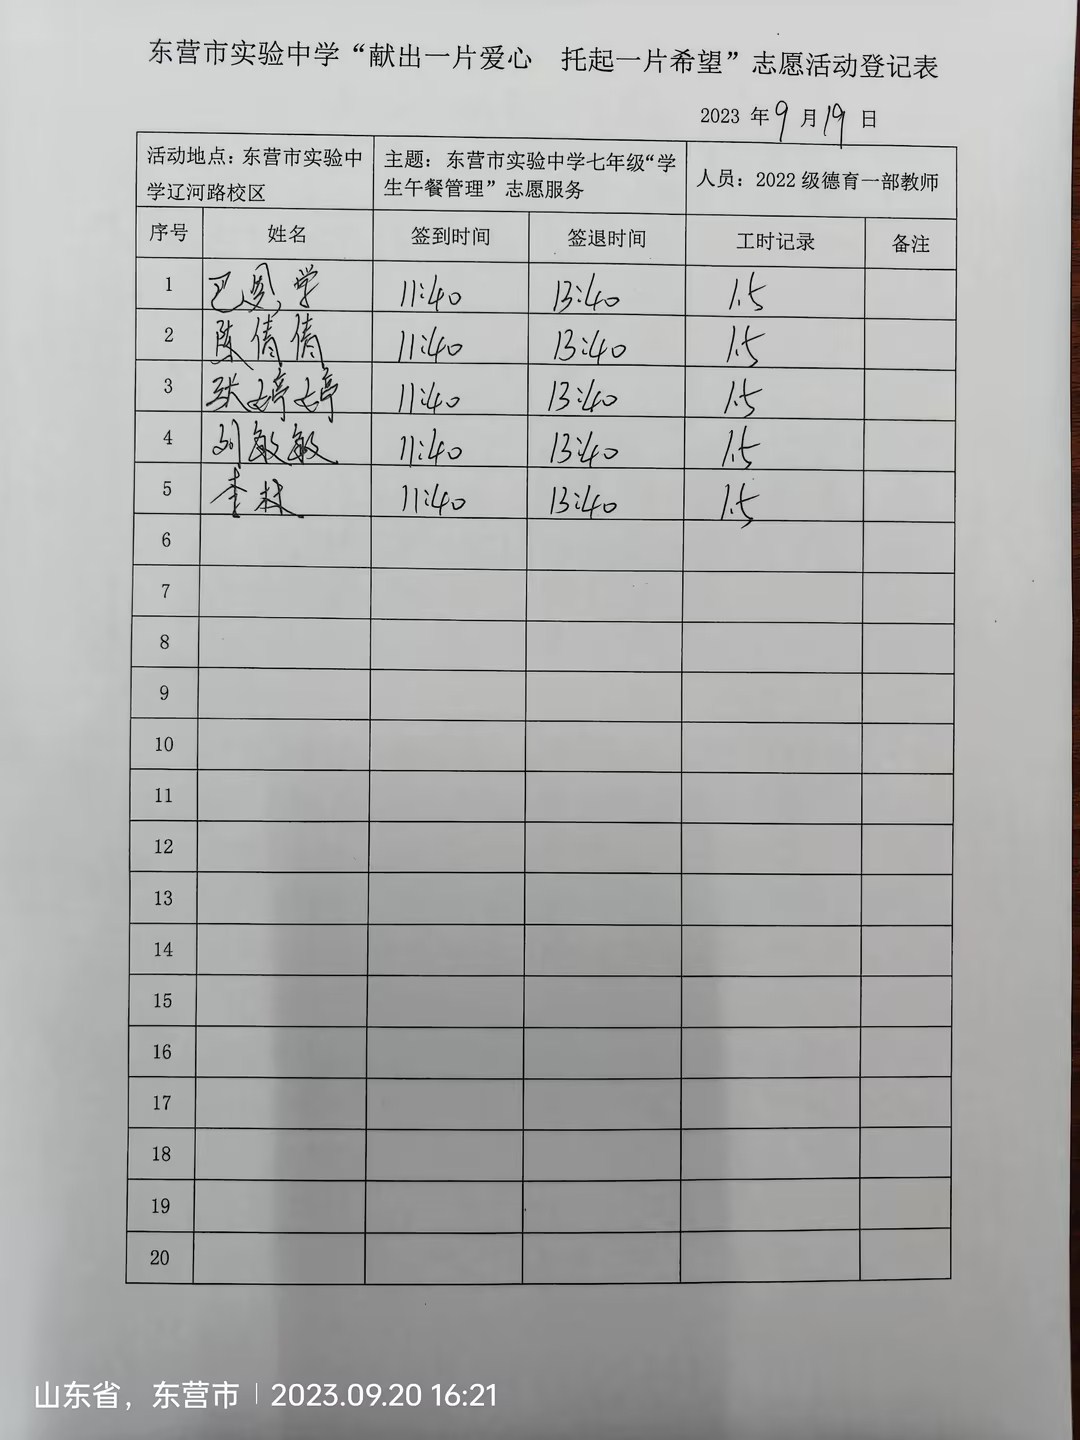 东营市实验中学“献出一片爱心 托起一片希望”志愿活动登记表
2023 年 9 月 19 日
活动地点：东营市实验中
学辽河路校区
主题：东营市实验中学七年级“学
生午餐管理”志愿服务
人员：2022 级德育一部教师
序号 姓名 签到时间 签退时间 工时记录 备注
1 巴 学 11:40 13:40 1.5
2 陈倩倩 11:40 13:40 1.5
3 张婷婷 11:40 13:40 1.5
4 刘敏敏 11:40 13:40 1.5
5 李林 11:40 13:40 1.5
6
7
8
9
10
11
12
13
14
15
16
17
18
19
20
山东省，东营市 | 2023.09.20 16:21